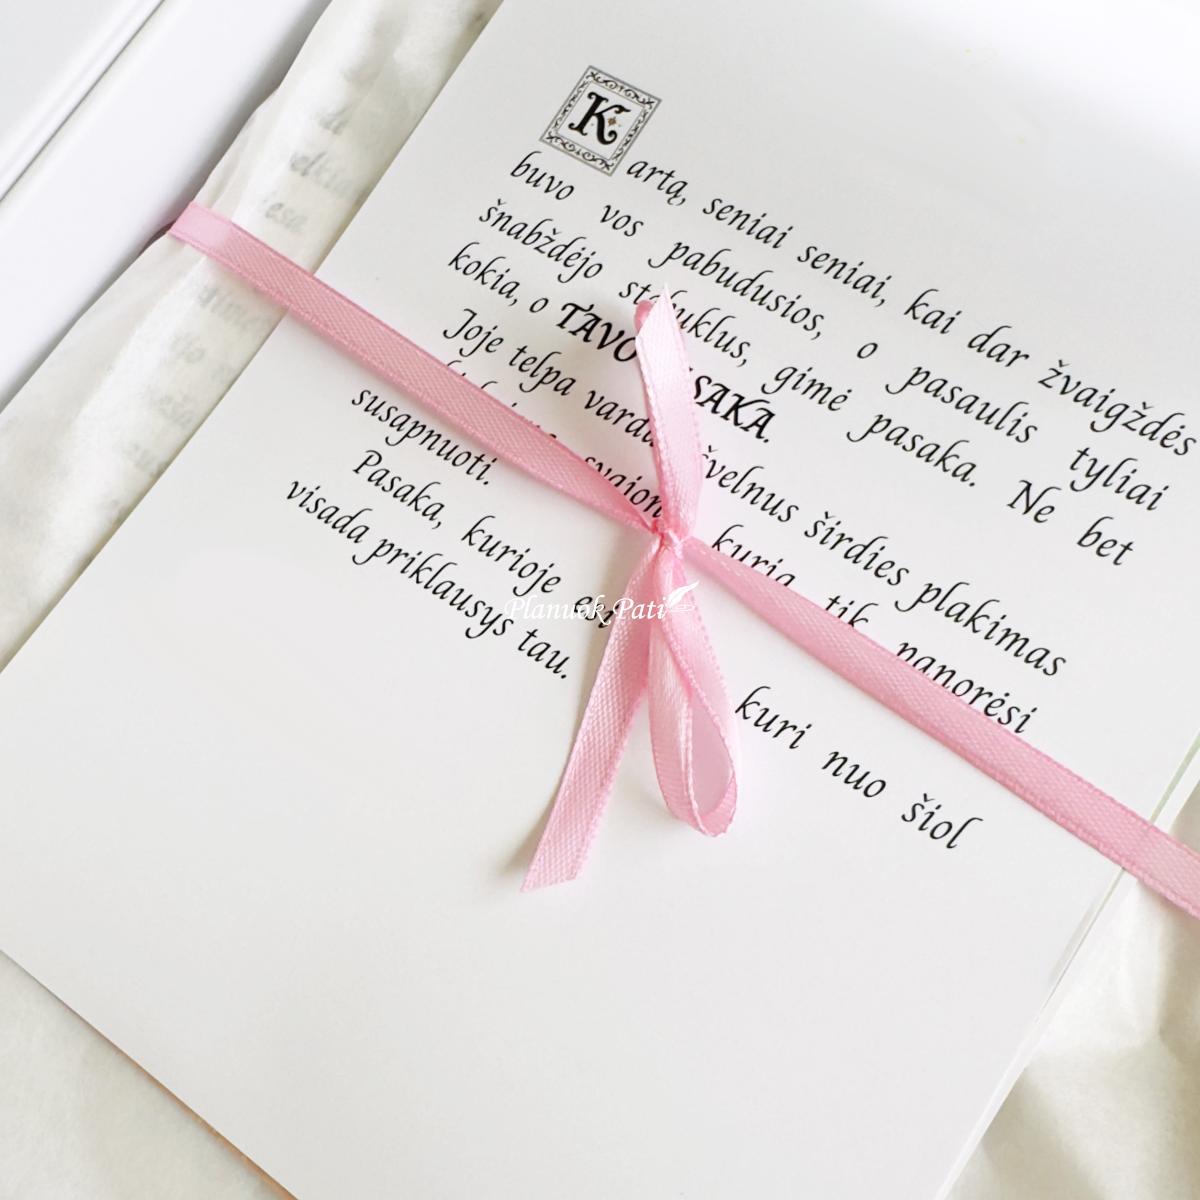 Kartą, seniai seniai, kai dar žvaigždės
buvo vos pabudusios, o pasaulis tyliai
šnabždėjo stebuklus, gimė pasaka. Ne bet
kokia, o TAVO PASAKA.
Joje telpa švelnus širdies plakimas
kurią tik panorėsi
susapnuoti.
Pasaka, kurioje kuri nuo šiol
visada priklausys tau.
Planuok Pati